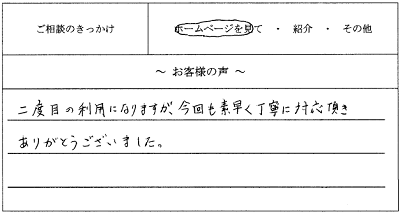 ご相談のきっかけ
ホームページを見て ・ 紹介 ・ その他
～ お客様の声 ～
二度目の利用になりますが、今回も素早く丁寧に対応頂き
ありがとうございました。